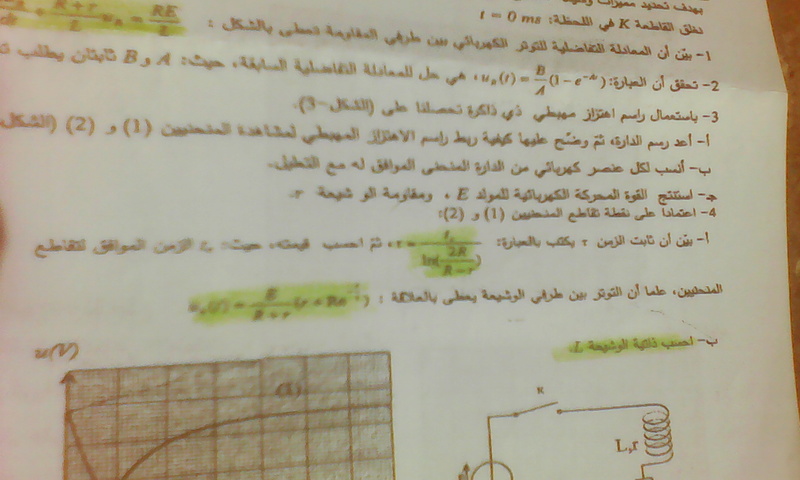 بهدف تحديد مميزات
نغلق القاطعة K في اللحظة: t = 0 ms
1- بيّن أن المعادلة التفاضلية للتوتر الكهربائي بين طرفي المقاومة تعطى بالشكل : + R+r/L u_R = RE/L
2- تحقق أن العبارة: u_R(t) = B/A (1-e^-At)، هي حل للمعادلة التفاضلية السابقة، حيث: A و B ثابتان يطلب
3- باستعمال راسم اهتزاز مهبطي ذي ذاكرة تحصلنا على (الشكل-3).
أ- أعد رسم الدارة، ثم وضّح عليها كيفية ربط راسم الاهتزاز المهبطي لمشاهدة المنحنيين (1) و (2) (الشكل
ب- أنسب لكل عنصر كهربائي من الدارة المنحنى الموافق له مع التعليل.
ج- استنتج القوة المحركة الكهربائية للمولد E ، ومقاومة الوشيعة r.
4- اعتمادا على نقطة تقاطع المنحنيين (1) و (2):
أ- بيّن أن ثابت الزمن τ يكتب بالعبارة: τ = t/ln(2R/R-r)، ثم احسب قيمته، حيث: t الزمن الموافق لتقاطع
المنحنيين، علما أن التوتر بين طرفي الوشيعة يعطى بالعلاقة : (t) = E/R+r (r + Re
ب- احسب ذاتية الوشيعة L.
u(V)
(1)
K
L,r